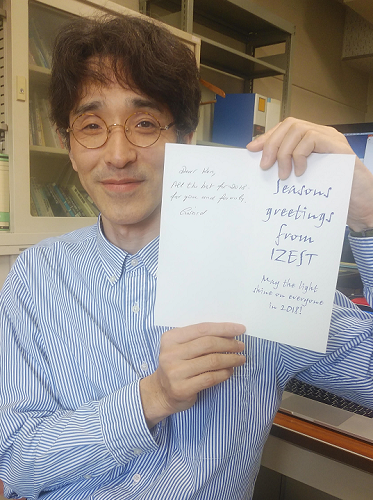 Dear Ken,
All the best for 2018
for you and family
Gerard
Seasons
greetings
from
IZEST
May the light
shine on everyone
in 2018!